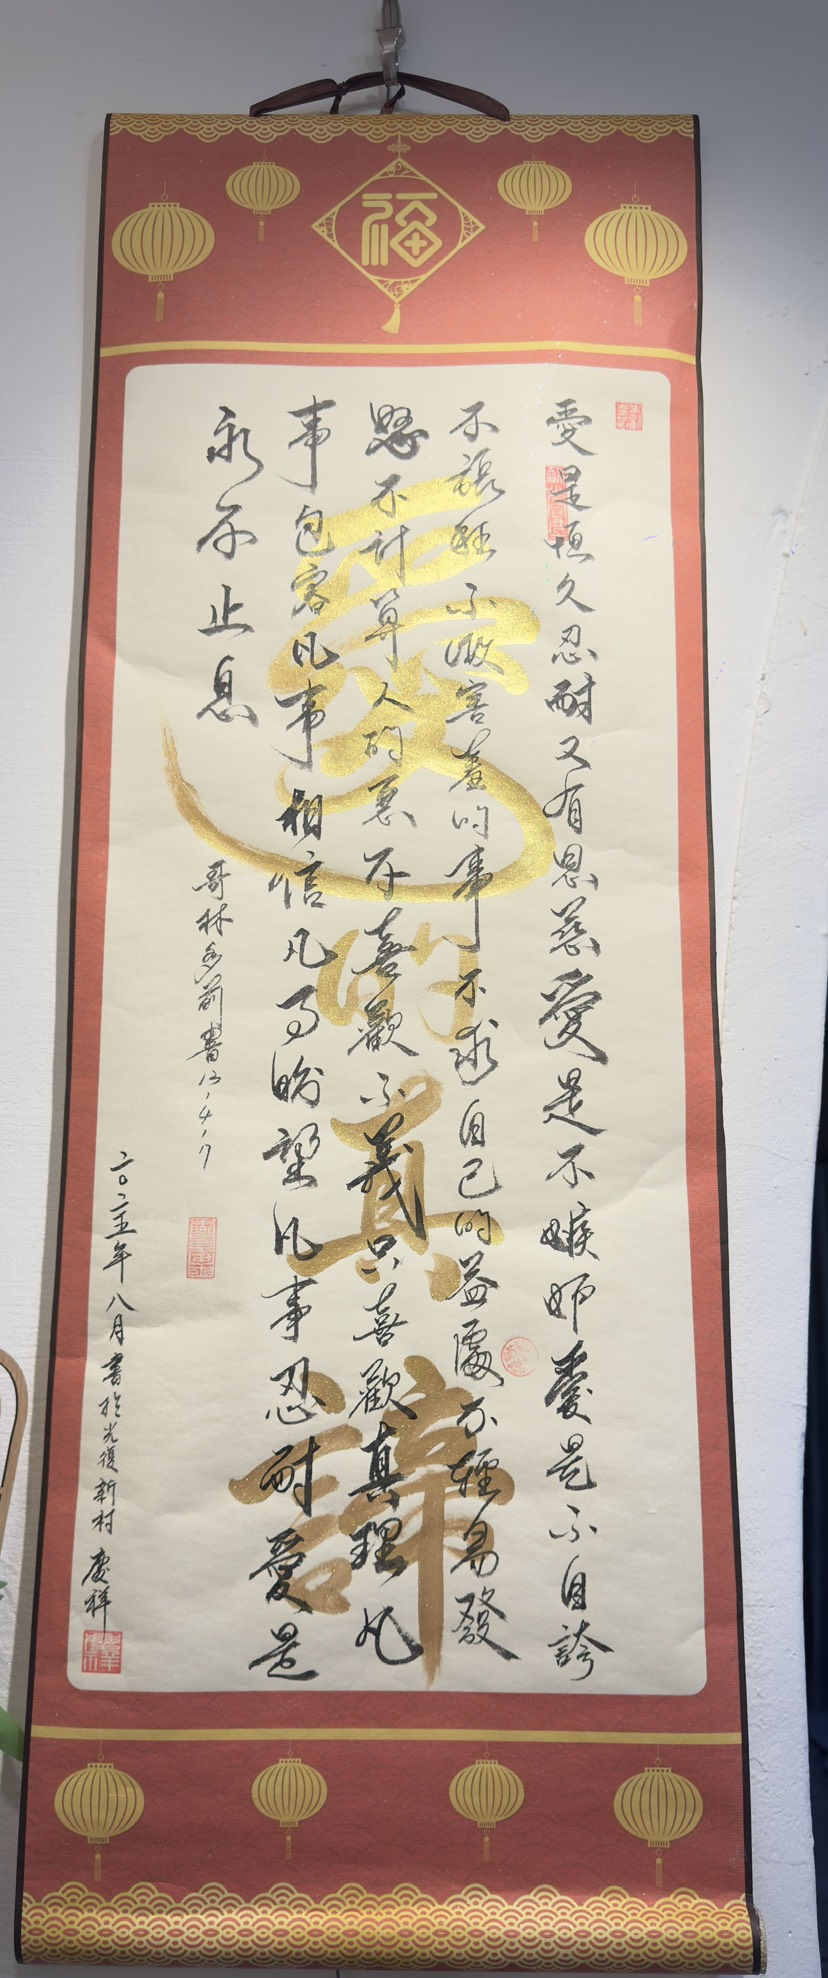 福
愛是恒久忍耐又有恩慈愛是不嫉妒愛是不自誇
不張狂不做害羞的事不求自己的益處不輕易發
怒不計算人的惡不喜歡不義只喜歡真理凡
事包容凡事相信凡事盼望凡事忍耐愛是
永不止息
哥林多前書13-4-7
二〇二五年八月書於光復新村 慶祥
愛的真諦